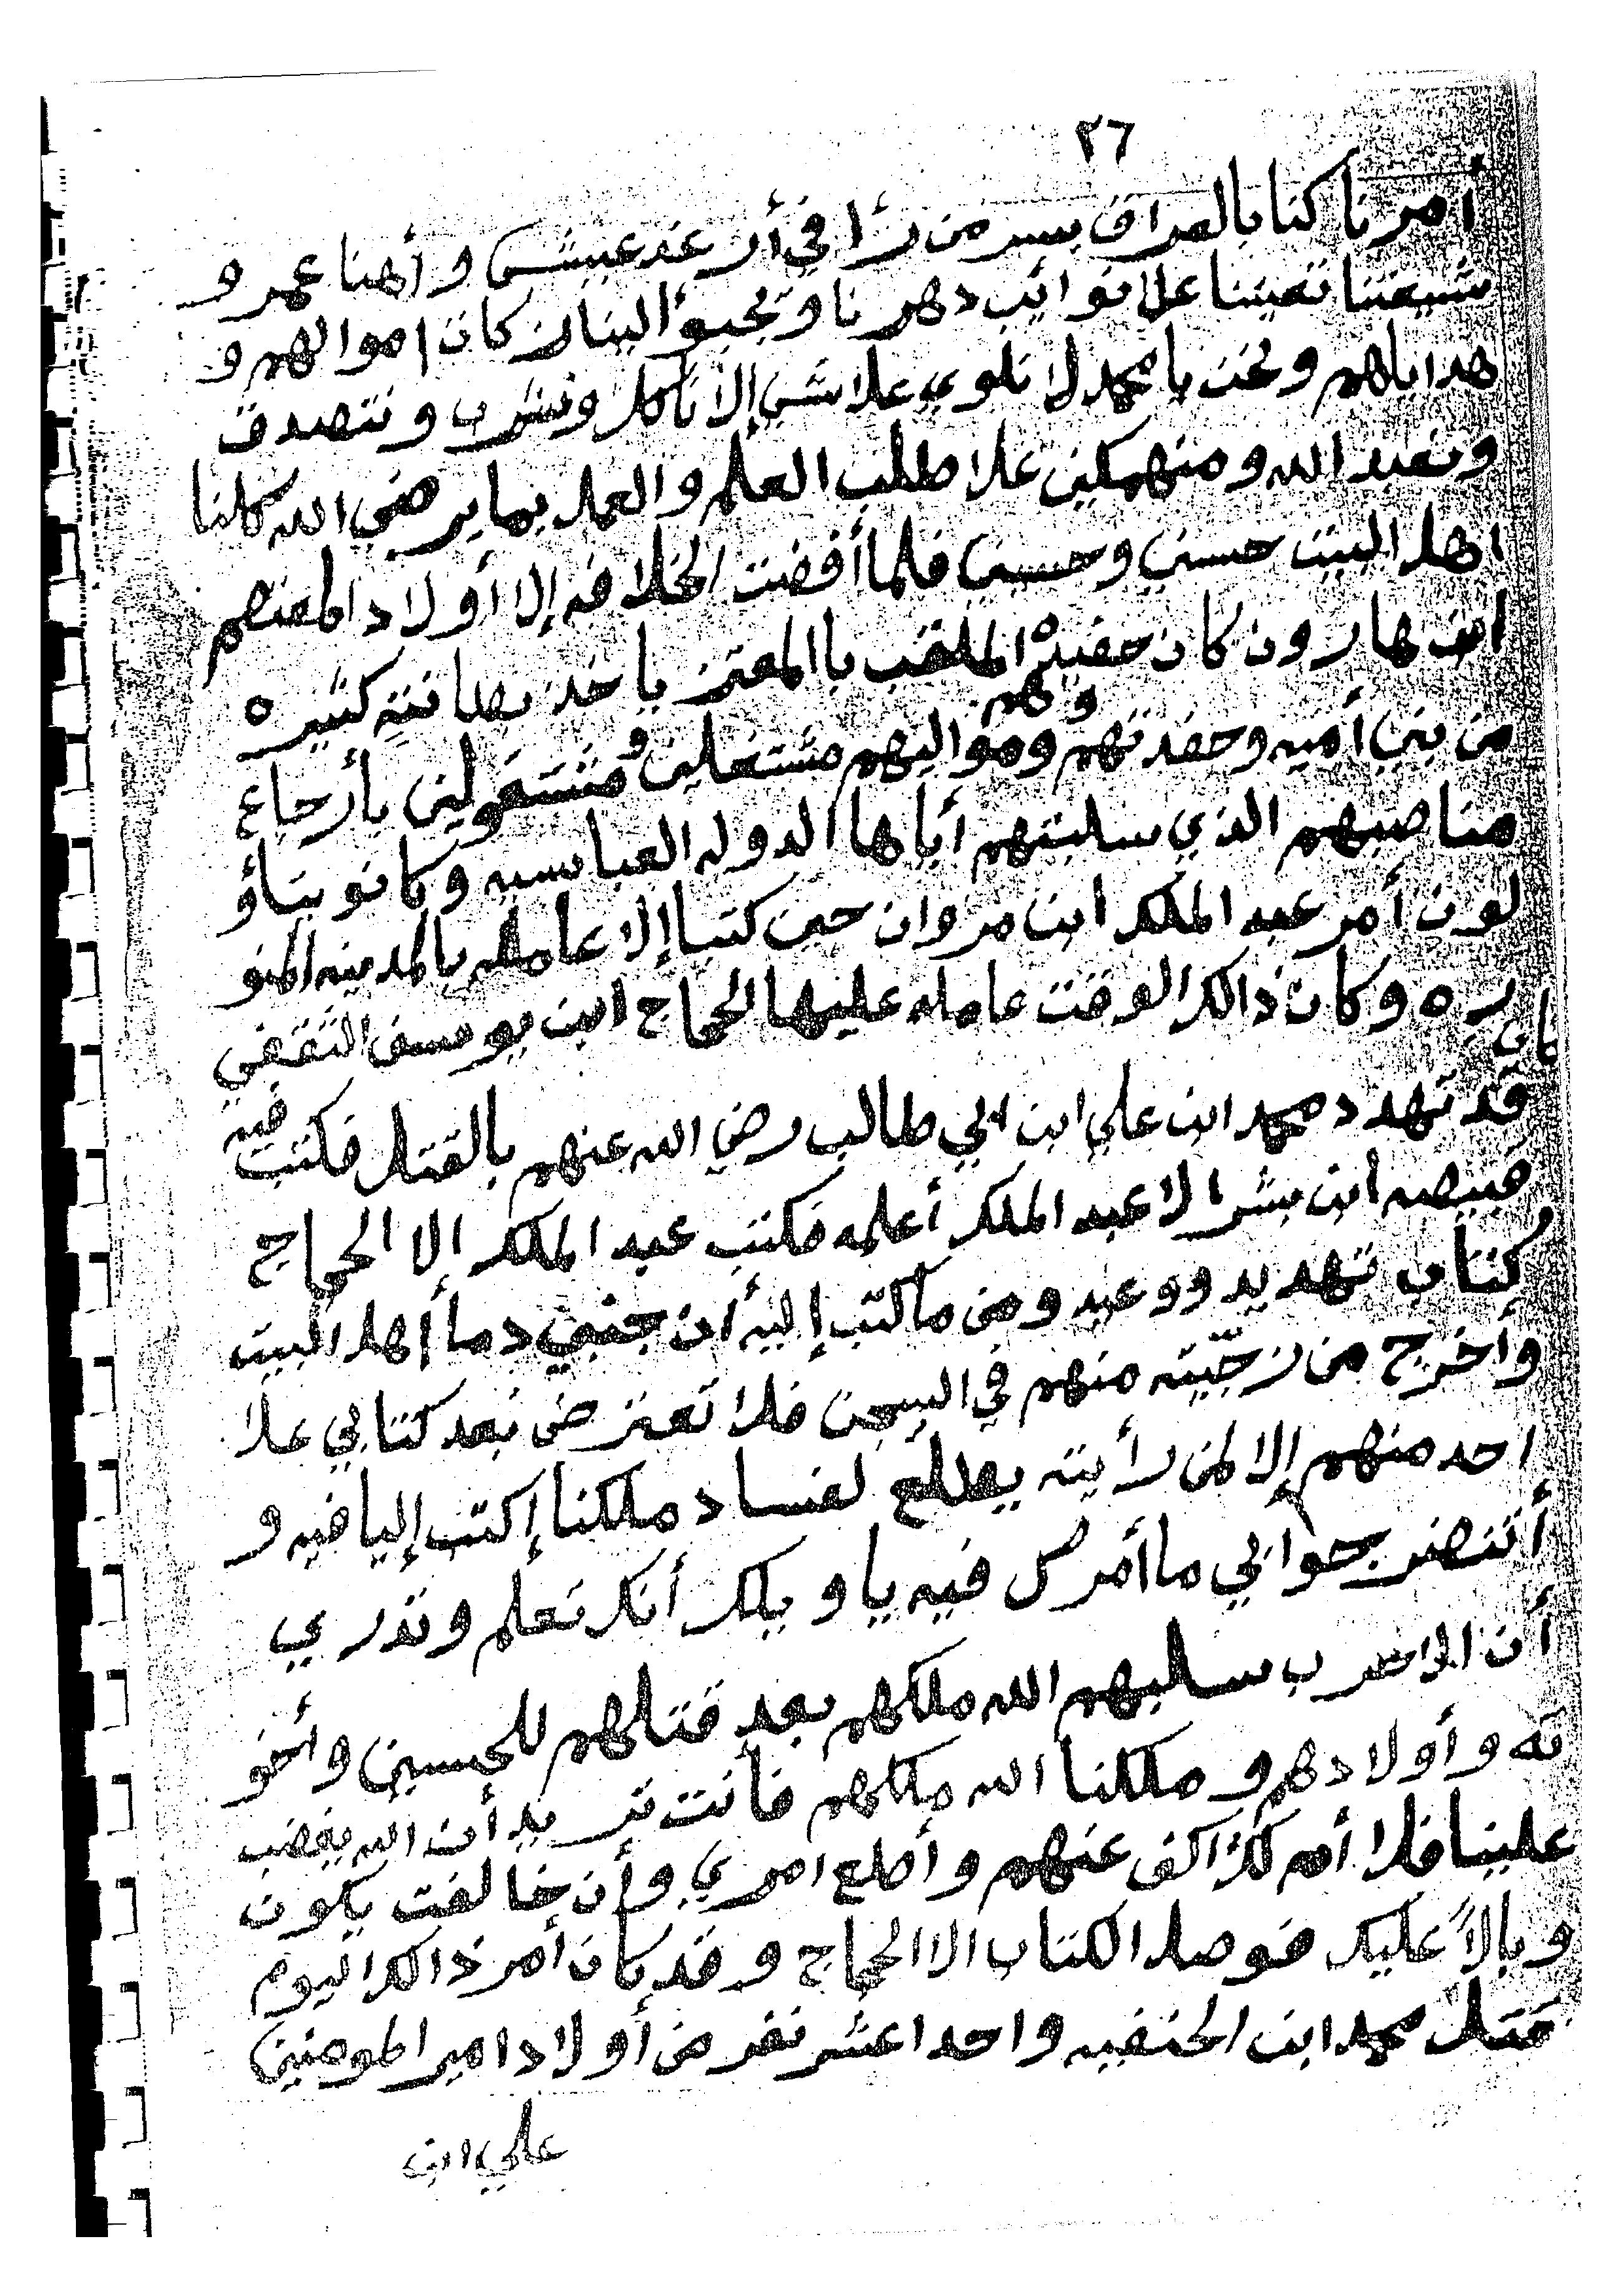 ٢٦
أمرنا كنا بالعراق بسر من رأا في أرغد عيش وأهنا عمر و
شيعتنا تعيننا علا نوائب دهرنا وتجبؤ الينا زكات اموالهم و
هداياهم ونحن يا محمد لا نلوي علا شي إلا نأكل ونشرب ونتصدق
ونعبد الله ومنهمكين علا طلب العلم والعمل بما يرضي الله كلنا
اهل البيت حسني وحسيني فلما أفضت الخلافه إلا أولاد المعتصم
ابن هارون كان حفيده الملقب باالمعتز ياخذ بطانتةٍ كثيره
من بني أميه وحفدتهم ومواليهم وهم مشتغلين ومنشغولين بأرجاع
مناصبهم الذي سلبتهم أياها الدوله العباسيه وكانو يتأؤ
لون أمر عبد الملك ابن مروان حين كتبا إلا عامله بالمدينه المنو
ره وكان ذالك الوقت عامله عليها الحجاج ابن يوسف الثقفي كان
قد تهدد محمد ابن علي ابن ابي طالب رضي الله عنهم بالقتل فكتب فيه
قبيصه ابن بشر الا عبد الملك أعلمه فكتب عبد الملك الا الحجاج
كتاب تهديد ووعيد ومن ما كتب إليه أن جنبني دما أهل البيت
وأخرج من زجيته منهم في السجن فلا تعترض بعد كتابي علا
احد منهم إلا لمن رأيته يطلع لفساد ملكنا إكتب إليا فيه و
أنتضر بجوابي ما أمرك فيه يا ويلك أنك تعلم وتدري
أن ال حرب سلبهم الله ملكهم بعد قتلهم للحسين وأخو
ته وأولادهم وملكنا الله ملكهم فأنت تريد أن الله يغضب
علينا فلا أم لك اكف عنهم وأطع امري وأن خالفت يكون
وبالاً عليك فوصل الكتاب الا الحجاج وقد كان أمر ذالك اليوم
قتل محمد ابن الحنفيه واحدا عشر نفر من أولاد امير المومنين
علي ابن